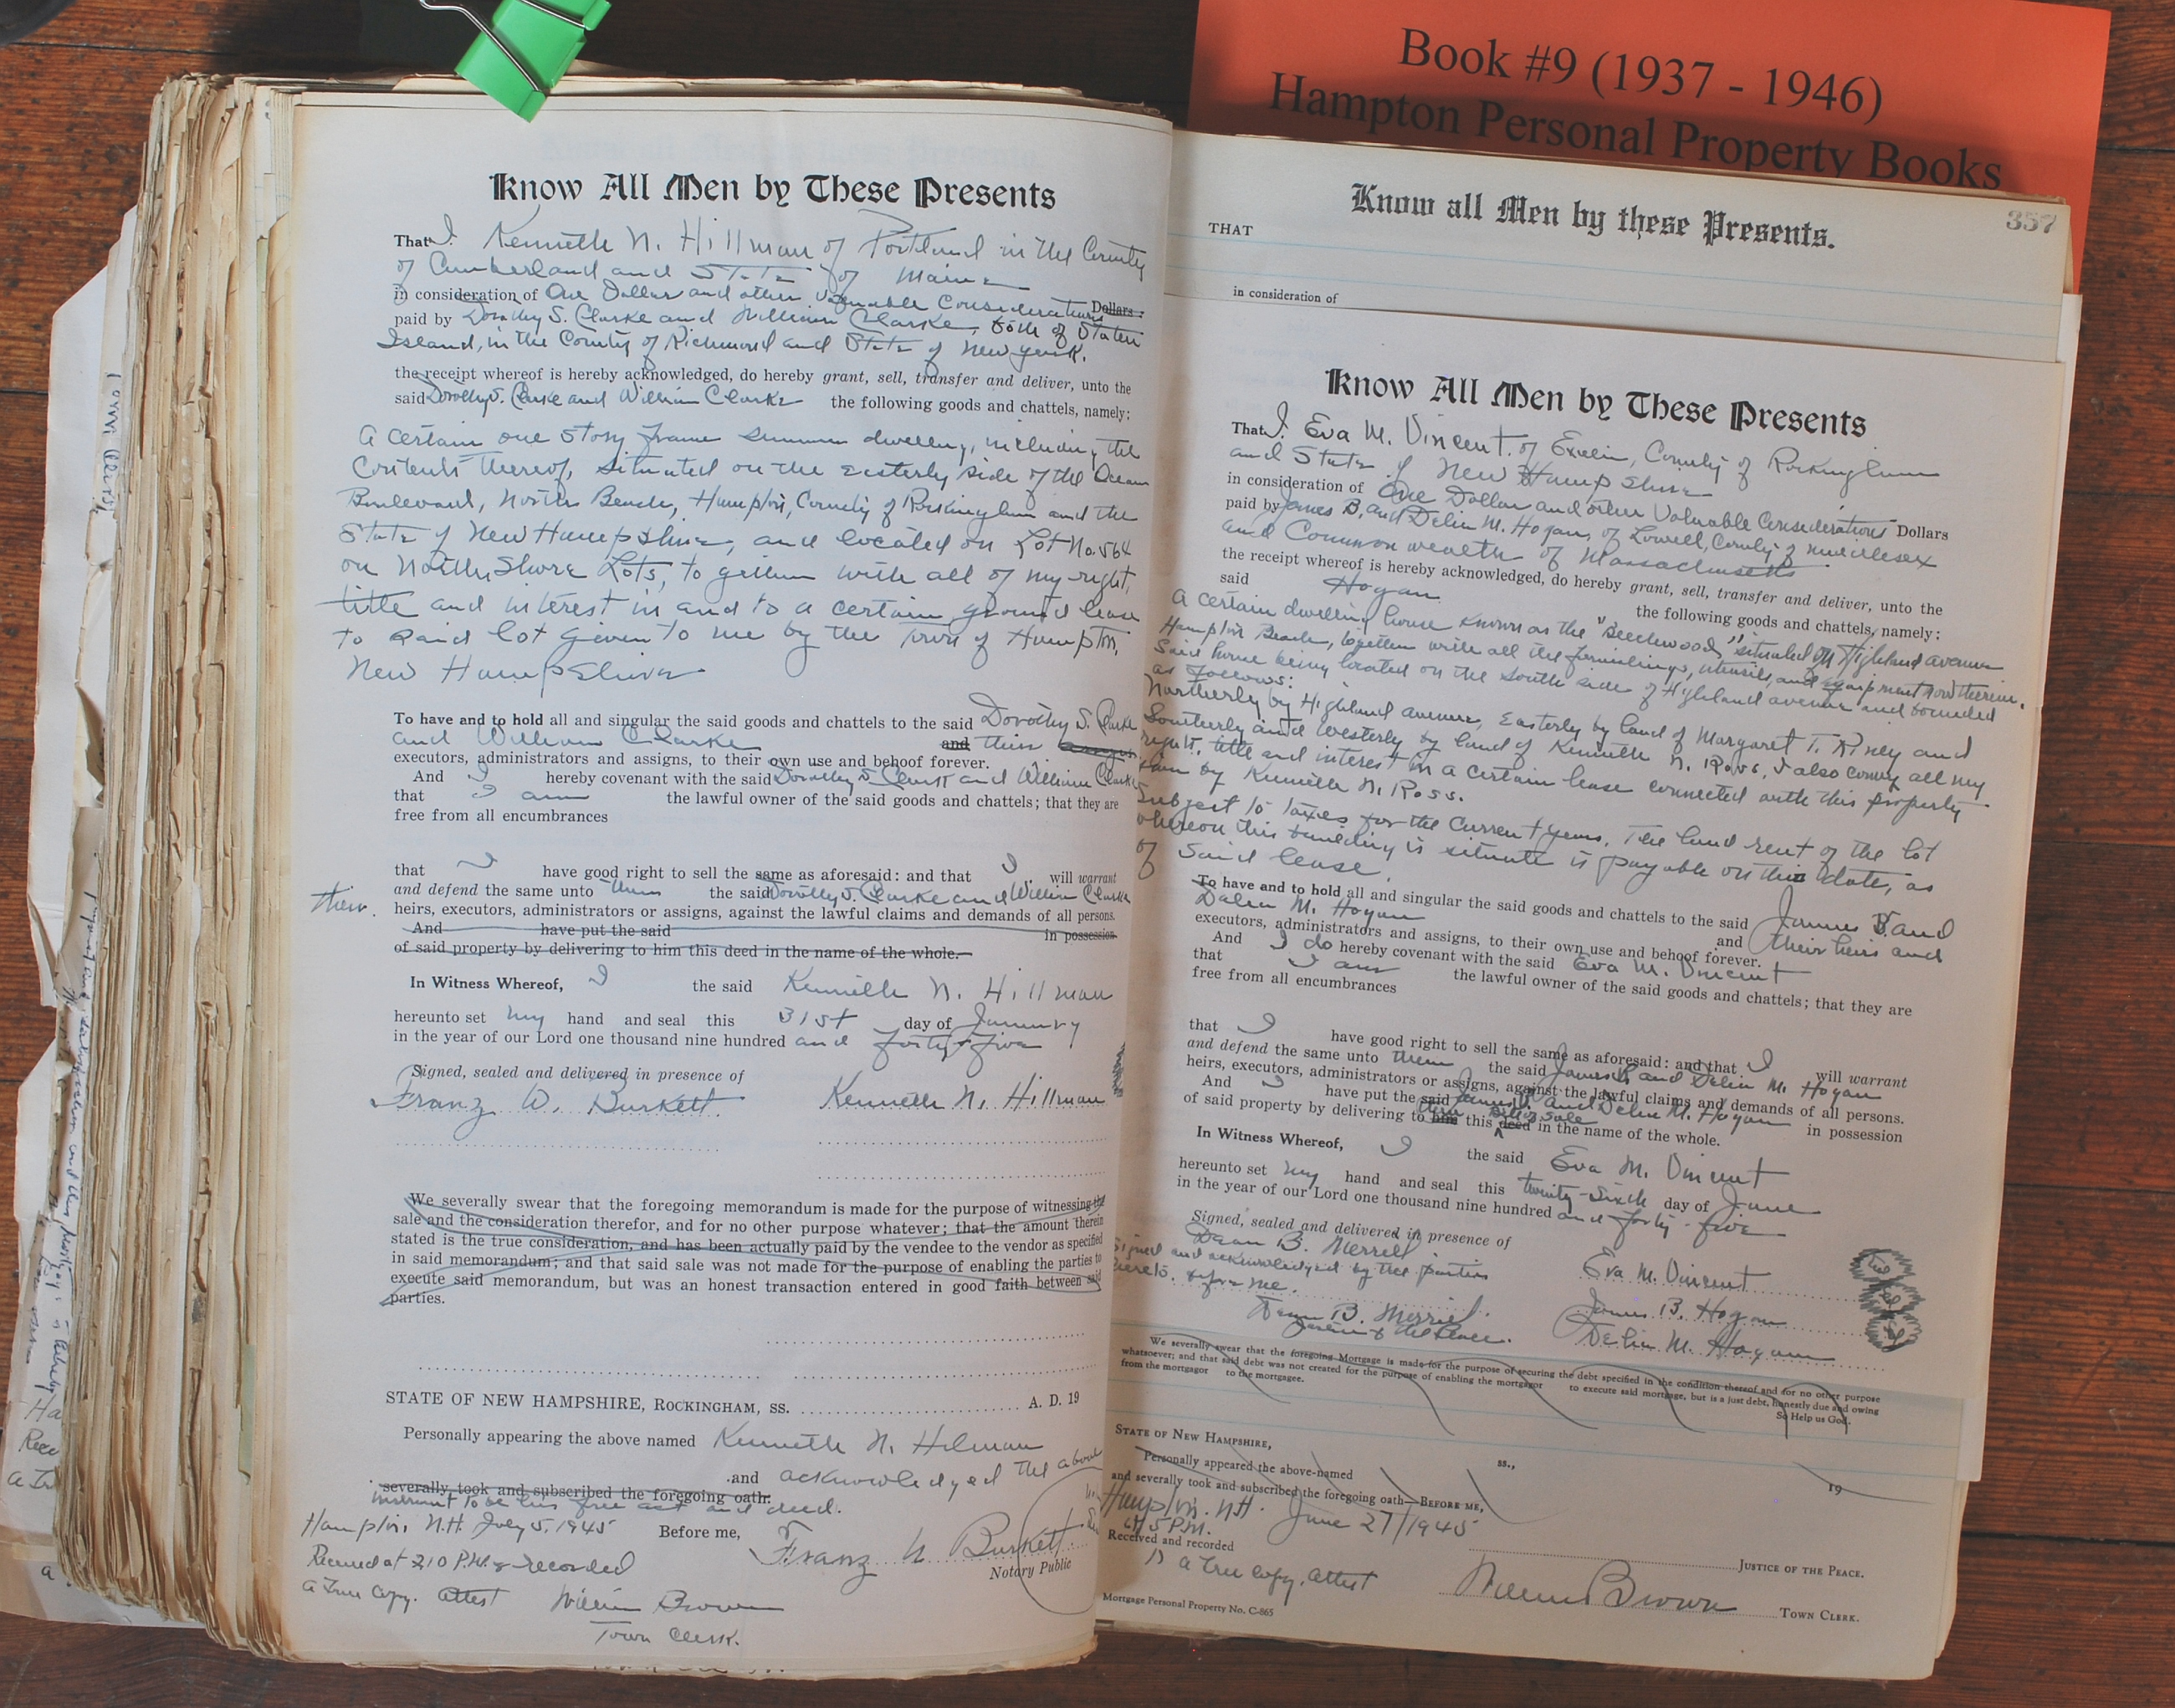 Book #9 (1937 - 1946)
Hampton Personal Property Books
Know All Men by These Presents
That I. Kenneth N. Hillman of Portland in the County
of Cumberland and State of Maine
in consideration of One Dollar and other valuable Considerations Dollars
paid by Dorothy S. Clarke and William Clarke, both of Staten
Island, in the County of Richmond and State of New York.
the receipt whereof is hereby acknowledged, do hereby grant, sell, transfer and deliver, unto the
said Dorothy S. Clarke and William Clarke the following goods and chattels, namely:
A certain one story frame summer dwelling, including the
Contents thereof, situated on the easterly side of the Ocean
Boulevard, North Beach, Hampton, County of Rockingham and the
State of New Hampshire, and located on Lot No. 564
on North Shore Lots, together with all of my right,
title and interest in and to a certain ground lease
to said lot given to me by the Town of Hampton,
New Hampshire
To have and to hold all and singular the said goods and chattels to the said Dorothy S. Clarke
and William Clarke and their
executors, administrators and assigns, to their own use and behoof forever.
And I hereby covenant with the said Dorothy S. Clark and William Clarke
that I am the lawful owner of the said goods and chattels; that they are
free from all encumbrances
that I have good right to sell the same as aforesaid: and that I will warrant
and defend the same unto them the said Dorothy S. Clarke and William Clarke
their. heirs, executors, administrators or assigns, against the lawful claims and demands of all persons.
And have put the said in possession
of said property by delivering to him this deed in the name of the whole.
In Witness Whereof, I the said Kenneth N. Hillman
hereunto set my hand and seal this 31st day of January
in the year of our Lord one thousand nine hundred and forty-five
Signed, sealed and delivered in presence of
Franz W. Burkett. Kenneth N. Hillman
We severally swear that the foregoing memorandum is made for the purpose of witnessing the
sale and the consideration therefor, and for no other purpose whatever; that the amount therein
stated is the true consideration, and has been actually paid by the vendee to the vendor as specified
in said memorandum; and that said sale was not made for the purpose of enabling the parties to
execute said memorandum, but was an honest transaction entered in good faith between said
parties.
STATE OF NEW HAMPSHIRE, ROCKINGHAM, SS. A. D. 19
Personally appearing the above named Kenneth N. Hilman
and acknowledged the above
severally took and subscribed the foregoing oath.
instrument to be his free act and deed.
Hampton, N.H. July 5, 1945 Before me, Franz W Burkett.
Received at 2 10 P.M. & recorded Notary Public
A True Copy. Attest William Brown
Town Clerk.
Know all Men by these Presents. 357
THAT
in consideration of
Know All Men by These Presents
That I. Eva M. Vincent. of Exeter, County of Rockingham
and State of New Hampshire
in consideration of One Dollar and other Valuable Considerations Dollars
paid by James B. and Delia M. Hogan, of Lowell, County of Middlesex
and Commonwealth of Massachusetts
the receipt whereof is hereby acknowledged, do hereby grant, sell, transfer and deliver, unto the
said Hogan the following goods and chattels, namely:
A certain dwelling house known as the "Beechwood" situated on Highland avenue
Hampton Beach, together with all the furnishings, utensils, and equipment now therein.
Said home being located on the south side of Highland avenue and bounded
as follows:
Northerly by Highland avenue, Easterly by land of Margaret T. Riney and
Southerly and Westerly by land of Kenneth N. Ross, I also convey all my
right, title and interest in a certain lease connected with this property
by Kenneth N. Ross.
Subject to taxes for the current year. The land rent of the lot
whereon this building is situate is payable on this date, as
of said lease.
To have and to hold all and singular the said goods and chattels to the said James B. and
Delia M. Hogan and their heirs and
executors, administrators and assigns, to their own use and behoof forever.
And I do hereby covenant with the said Eva M. Vincent
that I am the lawful owner of the said goods and chattels; that they are
free from all encumbrances
that I have good right to sell the same as aforesaid: and that I will warrant
and defend the same unto them the said James B. and Delia M. Hogan
heirs, executors, administrators or assigns, against the lawful claims and demands of all persons.
And I have put the said James B. and Delia M. Hogan in possession
of said property by delivering to him them this deed bill of sale in the name of the whole.
In Witness Whereof, I the said Eva M. Vincent
hereunto set my hand and seal this twenty-sixth day of June
in the year of our Lord one thousand nine hundred and forty-five
Signed, sealed and delivered in presence of
Dean B. Merrill
Signed and acknowledged by the parties Eva M. Vincent
hereto. before me. James B. Hogan
Dean B. Merrill. Delia M. Hogan
Justice of the Peace.
We severally swear that the foregoing Mortgage is made for the purpose of securing the debt specified in the condition thereof and for no other purpose
whatsoever; and that said debt was not created for the purpose of enabling the mortgagor to execute said mortgage, but is a just debt, honestly due and owing
from the mortgagor to the mortgagee. So Help us God.
STATE OF NEW HAMPSHIRE, ss., 19
Personally appeared the above-named
and severally took and subscribed the foregoing oath—BEFORE ME,
Hampton. N.H. June 27, 1945
5 P.M.
Received and recorded JUSTICE OF THE PEACE.
A true copy. attest William Brown TOWN CLERK.
Mortgage Personal Property No. C-865